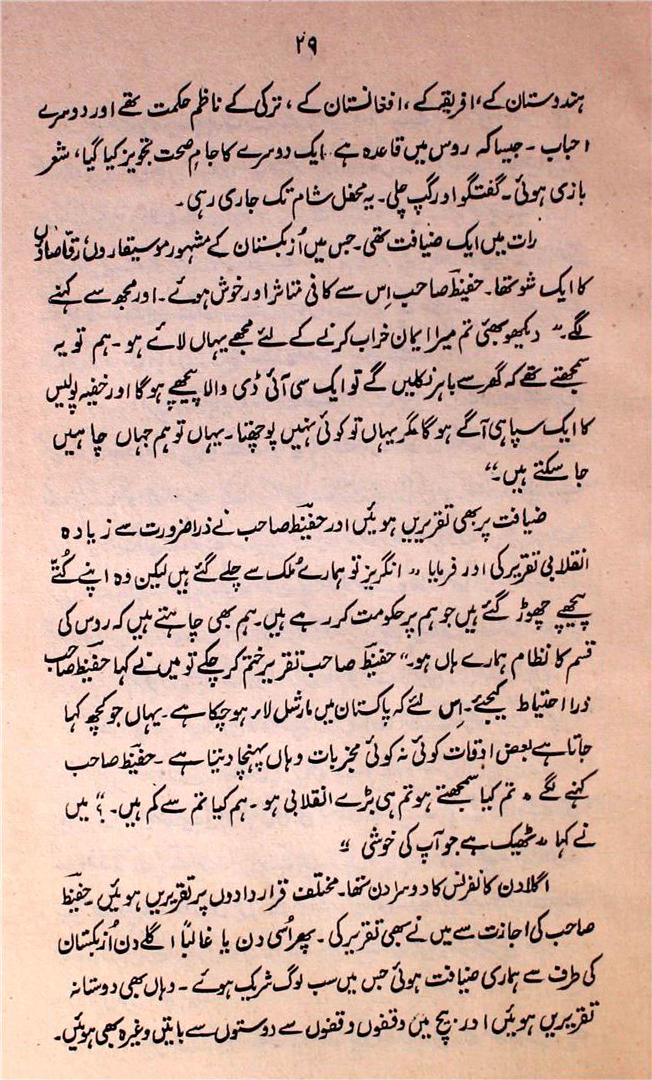 ۲۹
ہندوستان کے، افریقے کے، افغانستان کے، ترکی کے ناظم حکمت تھے اور دوسرے
احباب ۔ جیسا کہ روس میں قاعدہ ہے ایک دوسرے کا جامِ صحت تجویز کیا گیا، شعر
بازی ہوئی ۔ گفتگو اور گپ چلی ۔ یہ محفل شام تک جاری رہی ۔
رات میں ایک ضیافت تھی ۔ جس میں اُزبکستان کے مشہور موسیقاروں، رقاصاؤں
کا ایک شو تھا ۔ حفیظؔ صاحب اِس سے کافی متاثر اور خوش ہوئے ۔ اور مجھ سے کہنے
لگے ۔ ” دیکھو بھئی تم میرا ایمان خراب کرنے کے لئے مجھے یہاں لائے ہو ۔ ہم تو یہ
سمجھتے تھے کہ گھر سے باہر نکلیں گے تو ایک سی آئی ڈی والا پیچھے ہوگا اور خفیہ پولیس
کا ایک سپاہی آگے ہوگا مگر یہاں تو کوئی نہیں پوچھتا ۔ یہاں تو ہم جہاں چاہیں
جا سکتے ہیں ۔“
ضیافت پر بھی تقریریں ہوئیں اور حفیظؔ صاحب نے ذرا ضرورت سے زیادہ
انقلابی تقریر کی اور فرمایا ” انگریز تو ہمارے مُلک سے چلے گئے ہیں لیکن وہ اپنے کُتّے
پیچھے چھوڑ گئے ہیں جو ہم پر حکومت کر رہے ہیں ۔ ہم بھی چاہتے ہیں کہ روس کی
قسم کا نظام ہمارے ہاں ہو ۔“ حفیظؔ صاحب تقریر ختم کر چکے تو میں نے کہا حفیظؔ صاحب
ذرا احتیاط کیجئے ۔ اِس لئے کہ پاکستان میں مارشل لاء ہو چکا ہے ۔ یہاں جو کچھ کہا
جاتا ہے بعض اوقات کوئی نہ کوئی مخبر بات وہاں پہنچا دیتا ہے ۔ حفیظؔ صاحب
کہنے لگے ” تم کیا سمجھتے ہو تم ہی بڑے انقلابی ہو ۔ ہم کیا تم سے کم ہیں ۔ ؟“ میں
نے کہا ” ٹھیک ہے جو آپ کی خوشی “
اگلا دن کانفرنس کا دوسرا دن تھا ۔ مختلف قراردادوں پر تقریریں ہوئیں ۔ حفیظؔ
صاحب کی اجازت سے میں نے بھی تقریر کی ۔ پھر اُسی دن یا غالباً اگلے دن اُزبکستان
کی طرف سے ہماری ضیافت ہوئی جس میں سب لوگ شریک ہوئے ۔ وہاں بھی دوستانہ
تقریریں ہوئیں اور بیچ میں وقفوں وقفوں سے دوستوں سے باتیں وغیرہ بھی ہوئیں ۔